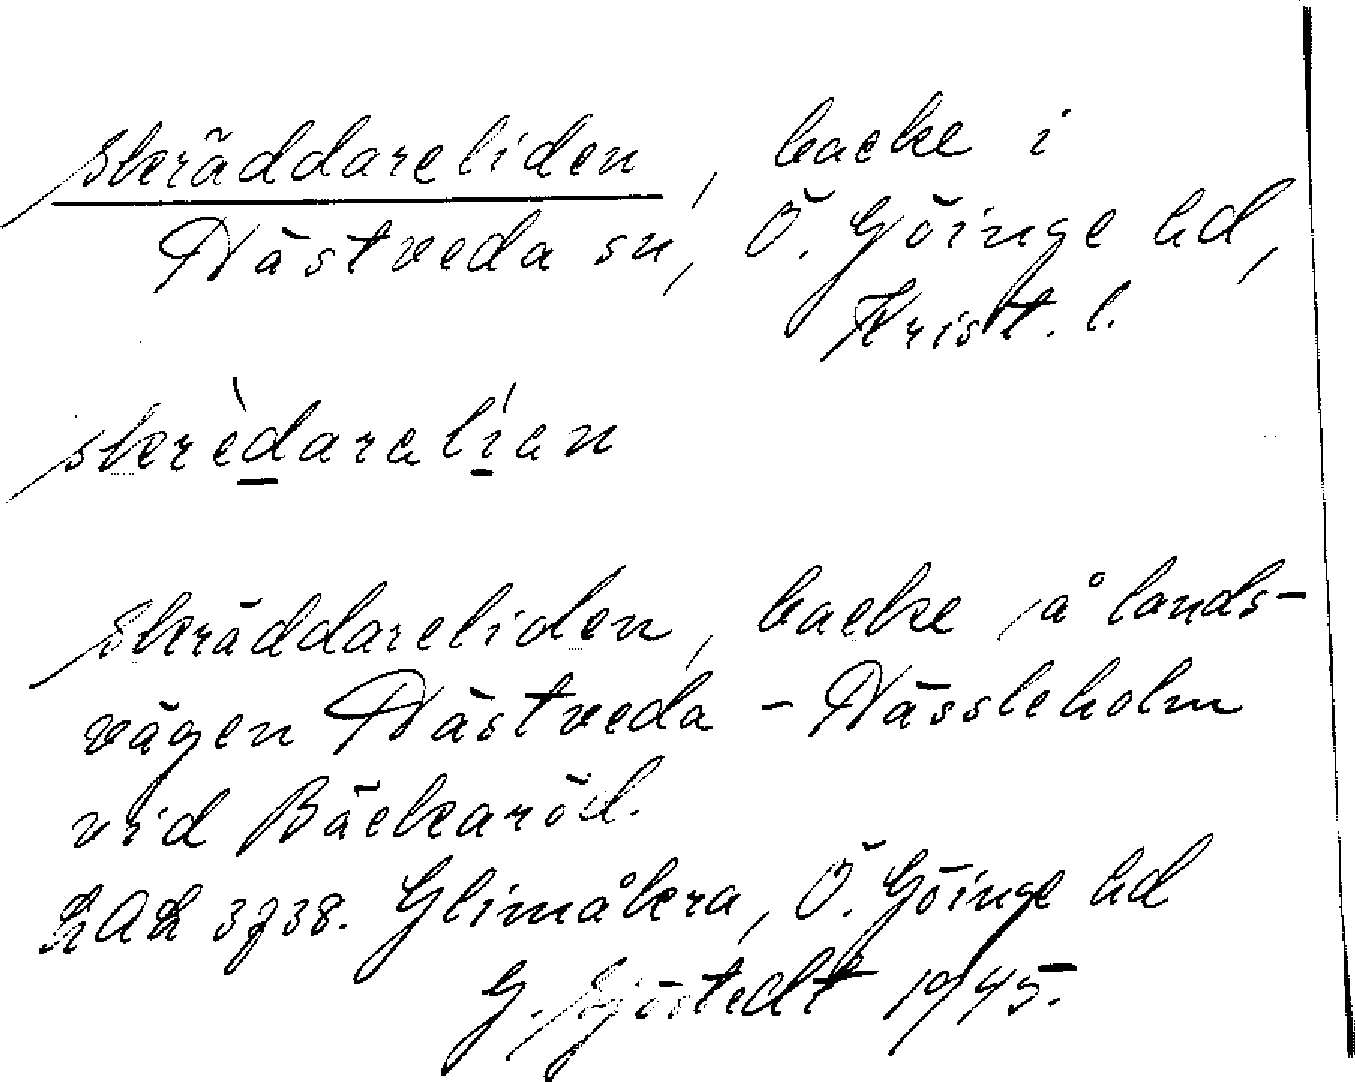 skräddareliden, backe i
Nästveda sn, Ö. Göinge hd,
Krist. l.
skrèdaralían
skräddareliden, backe å lands-
vägen Nästveda - Hässleholm
vid Bäckaröd.
LAL 3738. Glimåkra, Ö. Göinge hd
G. Sjöstedt 1945.